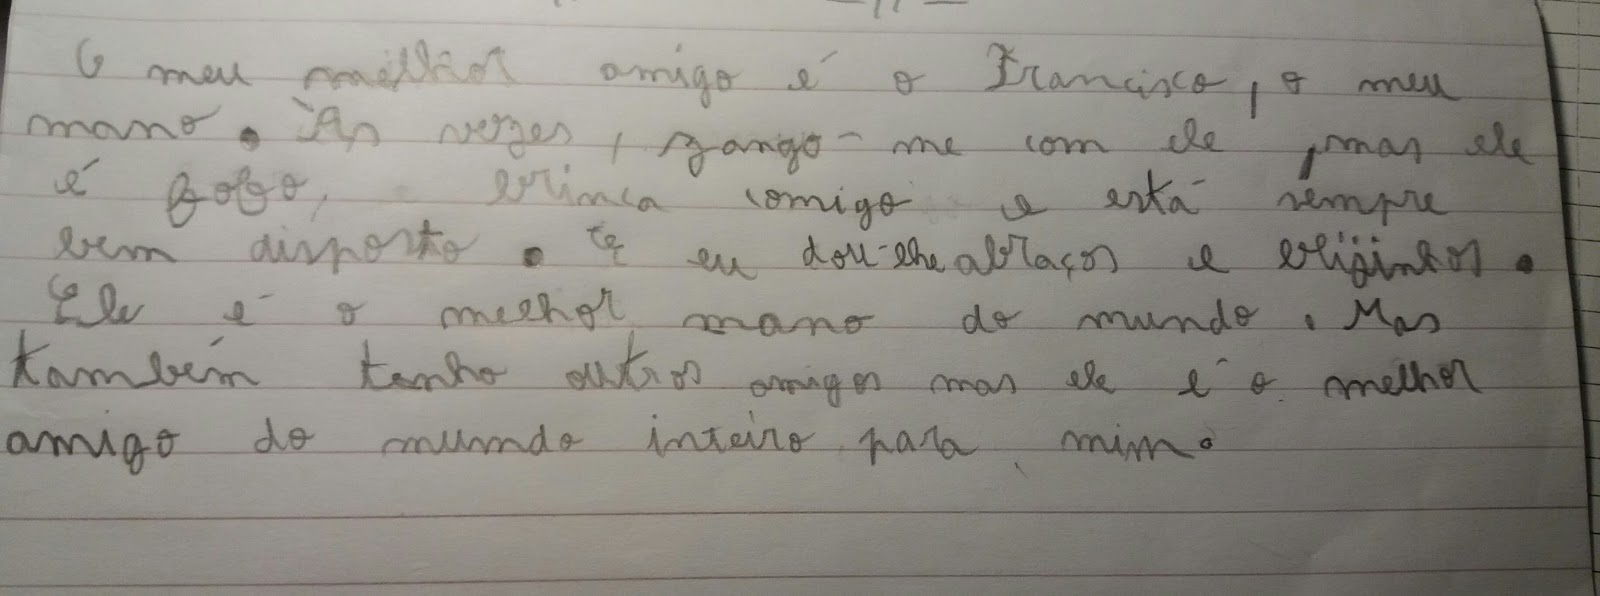 O meu melhor amigo é o Francisco, o meu
mano. Às vezes, zango-me com ele, mas ele
é fofo, brinca comigo e está sempre
bem disposto. E eu dou-lhe abraços e beijinhos.
Ele é o melhor mano do mundo. Mas
também tenho outros amigos mas ele é o melhor
amigo do mundo inteiro para mim.